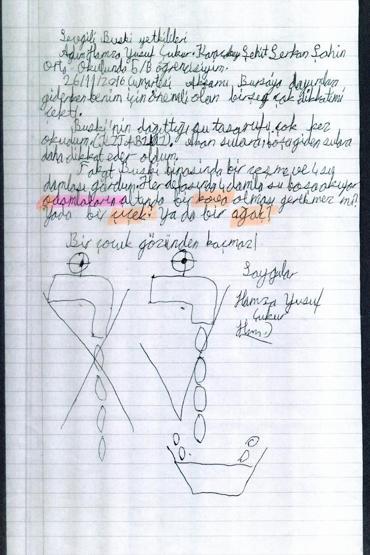 Sevgili Buski yetkilileri
Adım Hamza Yusuf Çukur. Karaçay Şehit Serkan Şahin
Orta Okulunda 5/B öğrencisiyim.
26/11/2016 Cumartesi Akşamı Bursaya dayımdan
giderken benim için önemli olan bir şey çok dikkatimi
çekti.
Buski'nin dağıttığı su tasarrufu çok kez
okudum Akan sulara boşa giden sulara
daha dikkat eder oldum.
Fakat Buski binasında bir çeşme ve 4 su
damlası gördüm. Her defasında 4 damla su boşa akıyor
o damlaların altında bir kova olması gerekmez mi?
Yada bir çiçek? Ya da bir ağaç?
Bir çocuk gözünden kaçmaz!
Saygılar
Hamza Yusuf
Çukur